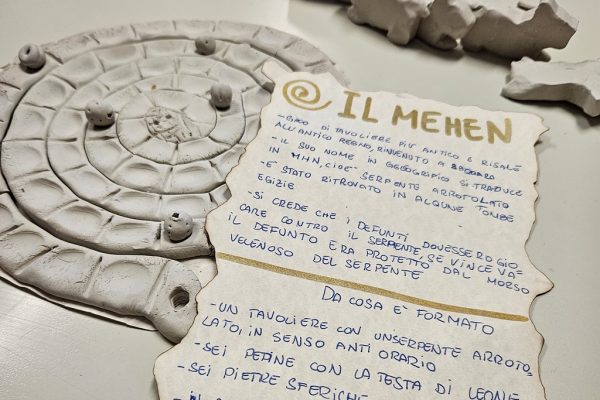 IL MEHEN
-GIOCO DI TAVOLIERE PIÙ ANTICO E RISALE
ALL'ANTICO REGNO, RINVENUTO A SAQQARA
-IL SUO NOME IN GEROGLIFICO SI TRADUCE
IN MHN, CIOÈ- SERPENTE ARROTOLATO
-È STATO RITROVATO IN ALCUNE TOMBE
EGIZIE
-SI CREDE CHE I DEFUNTI DOVESSERO GIO
CARE CONTRO IL SERPENTE, SE VINCEVA-
IL DEFUNTO ERA PROTETTO DAL MORSO
VELENOSO DEL SERPENTE
DA COSA È FORMATO
-UN TAVOLIERE CON UN SERPENTE ARROTO,
LATO, IN SENSO ANTI ORARIO
-SEI PEDINE CON LA TESTA DI LEONE
-SEI PIETRE SFERICHE